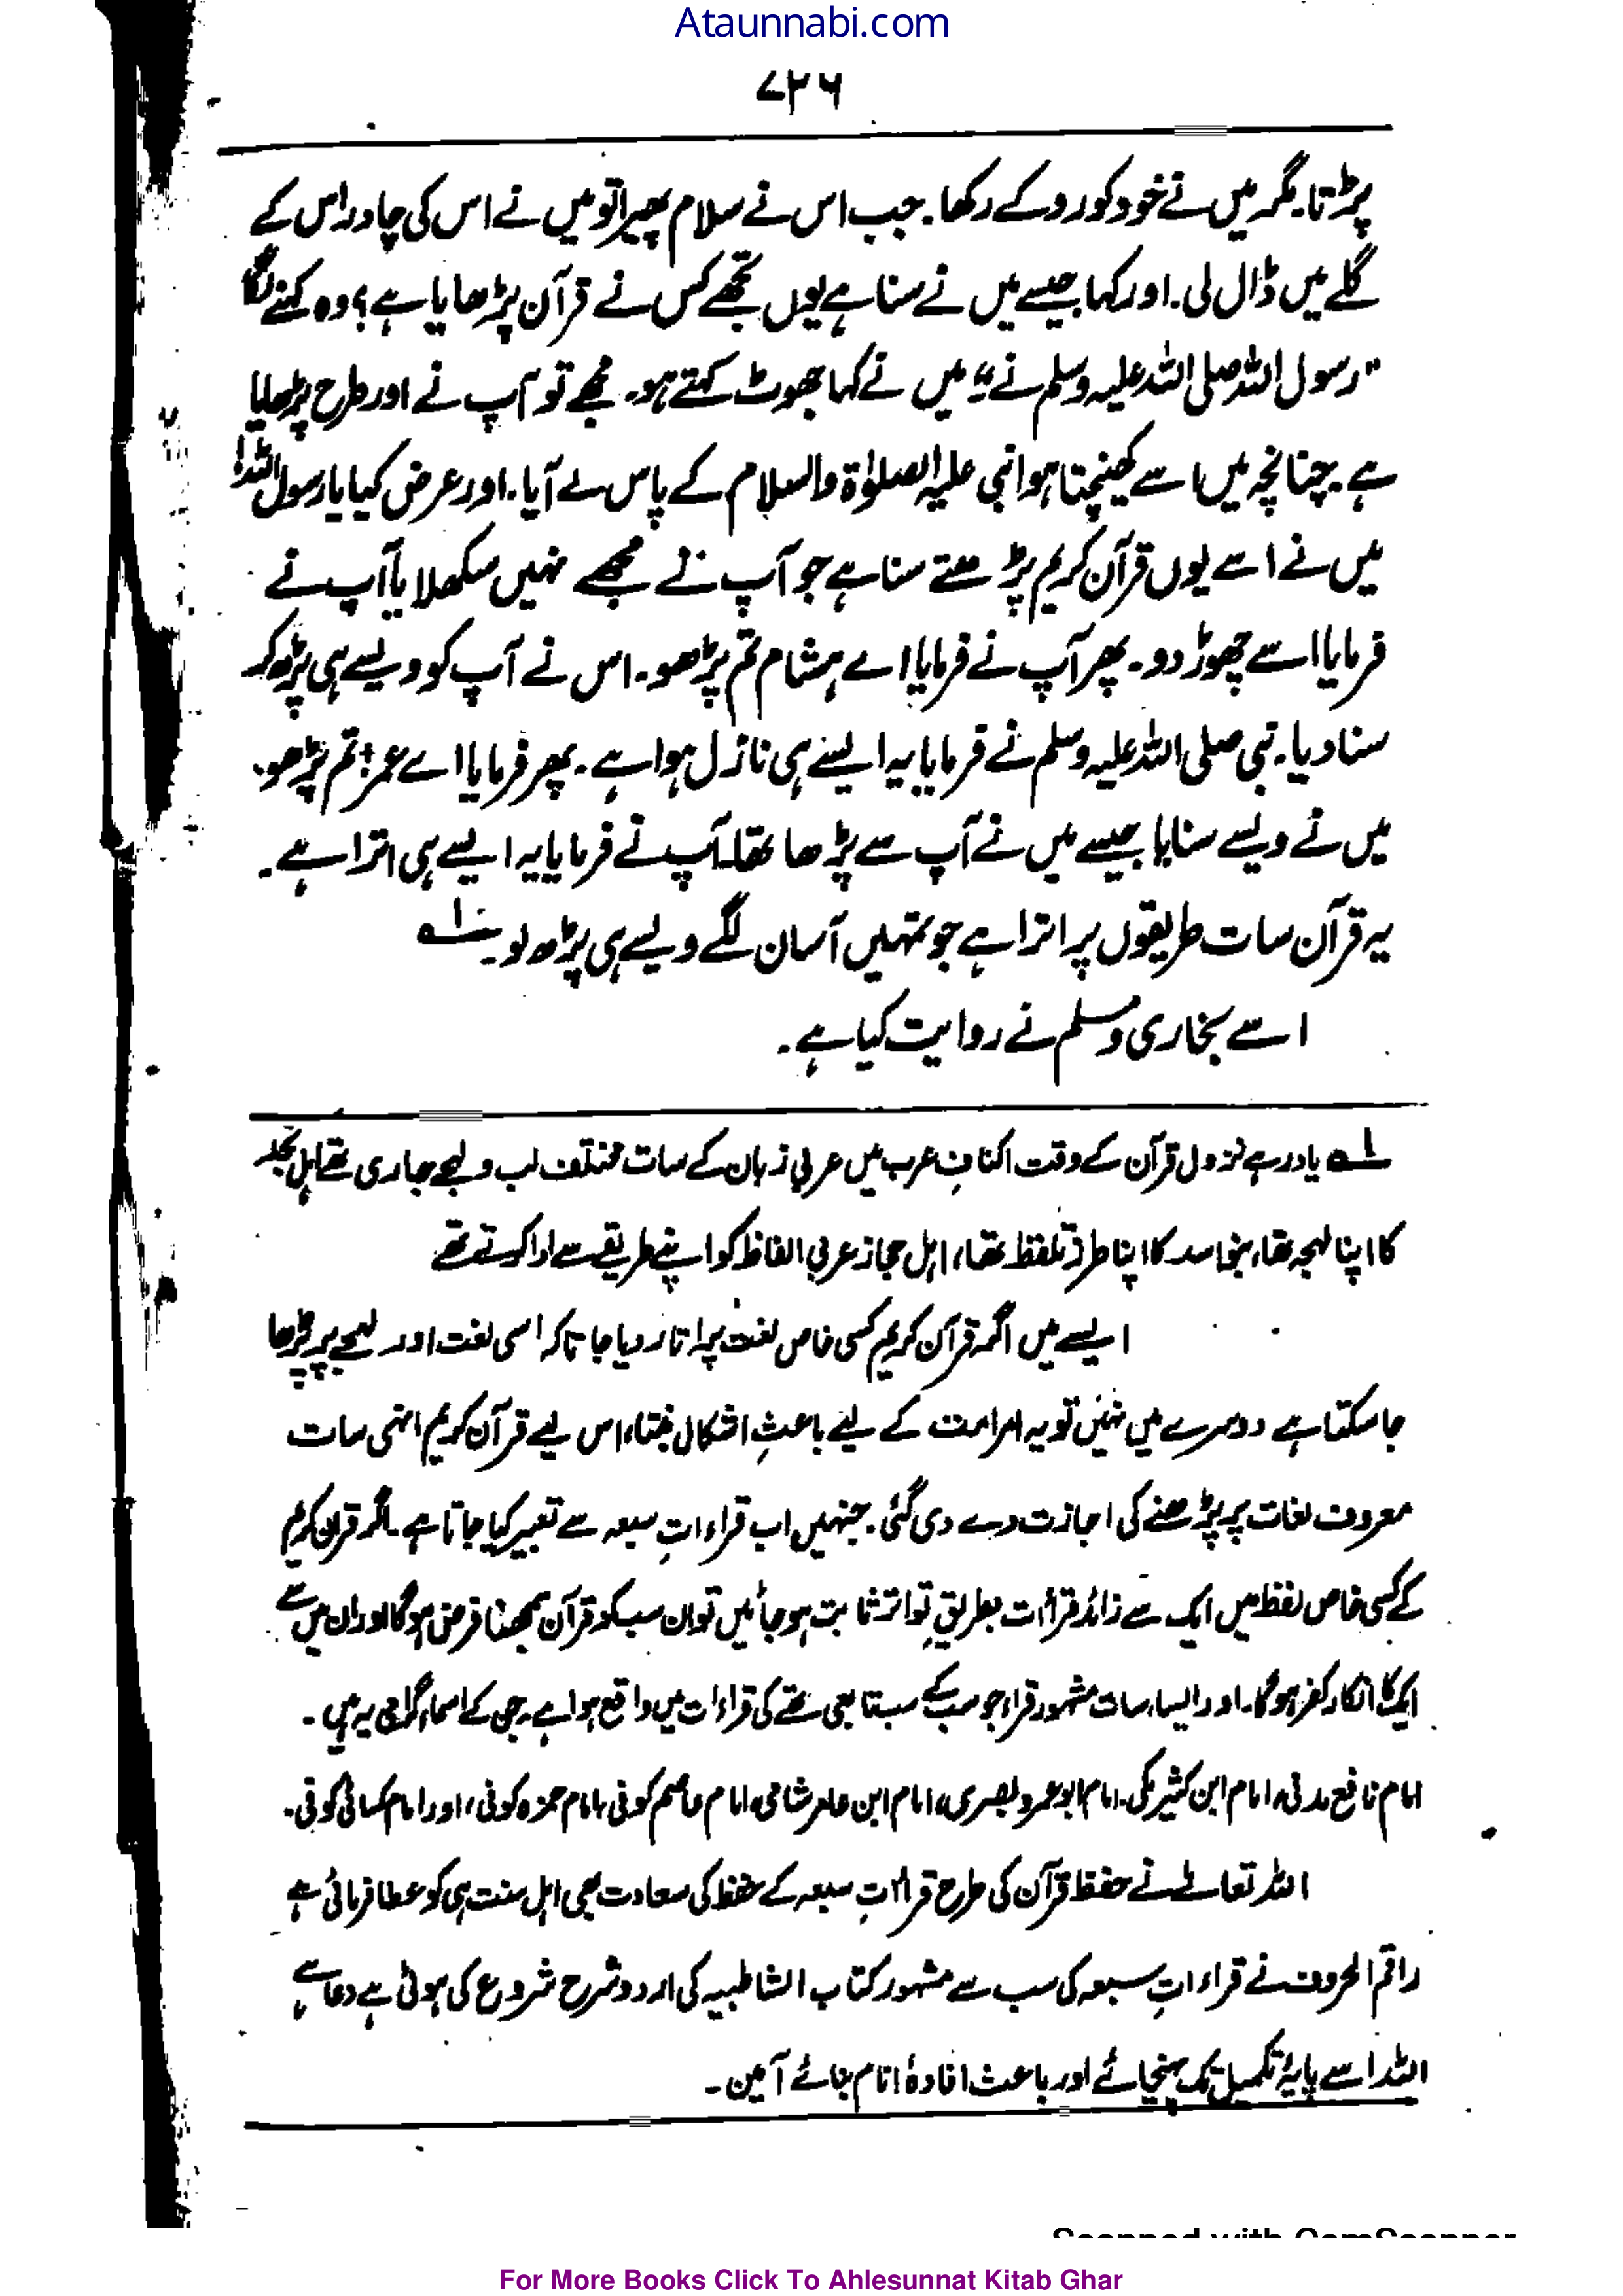 Ataunnabi.com
۷۲۶
پڑتا۔ مگر میں نے خود کو روکے رکھا۔ جب اس نے سلام پھیرا تو میں نے اس کی چادر اس کے
گلے میں ڈال لی۔ اور کہا جیسے میں نے سنا ہے یوں تجھے کس نے قرآن پڑھایا ہے؟ وہ کہنے لگا
”رسول اللہ صلی اللہ علیہ وسلم نے“ میں نے کہا جھوٹ کہتے ہو۔ مجھے تو آپ نے اور طرح پڑھایا
ہے۔ چنانچہ میں اسے کھینچتا ہوا نبی علیہ الصلوٰۃ والسلام کے پاس لے آیا۔ اور عرض کیا یا رسول اللہ!
میں نے اسے یوں قرآن کریم پڑھتے سنا ہے جو آپ نے مجھے نہیں سکھلایا آپ نے
فرمایا اسے چھوڑ دو۔ پھر آپ نے فرمایا اے ہشام تم پڑھو۔ اس نے آپ کو ویسے ہی پڑھ کر
سنا دیا۔ نبی صلی اللہ علیہ وسلم نے فرمایا یہ ایسے ہی نازل ہوا ہے۔ پھر فرمایا اے عمر! تم پڑھو۔
میں نے ویسے سنایا جیسے میں نے آپ سے پڑھا تھا۔ آپ نے فرمایا یہ ایسے ہی اترا ہے۔
یہ قرآن سات طریقوں پر اترا ہے جو تمہیں آسان لگے ویسے ہی پڑھ لو۔ لہ
اسے بخاری و مسلم نے روایت کیا ہے۔
لہ یاد رہے نزول قرآن کے وقت اکنافِ عرب میں عربی زبان کے سات مختلف لب و لہجے جاری تھے اہل نجد
کا اپنا لہجہ تھا، بنو اسد کا اپنا طرز تلفظ تھا، اہل حجاز عربی الفاظ کو اپنے طریقے سے ادا کرتے تھے
ایسے میں اگر قرآن کریم کسی خاص لغت پر اتار دیا جاتا کہ اسی لغت اور لہجے پر پڑھا
جا سکتا ہے دوسرے میں نہیں تو یہ امر امت کے لیے باعثِ اشکال بنتا، اس لیے قرآن کریم انہی سات
معروف لغات پر پڑھنے کی اجازت دے دی گئی۔ جنہیں اب قراءاتِ سبعہ سے تعبیر کیا جاتا ہے۔ اگر قرآن کریم
کے کسی خاص لفظ میں ایک سے زائد قراٰت بطریقِ تواتر ثابت ہو جائیں تو ان سب کو قرآن سمجھنا فرض ہوگا اور ان میں سے
ایک کا انکار کفر ہوگا۔ اور ایسا، سات مشہور قراء جو سب کے سب تابعی تھے کی قراءات میں واقع ہوا ہے۔ جن کے اسماء گرامی یہ ہیں۔
امام نافع مدنی، امام ابن کثیر مکی۔ امام ابو عمرو بصری، امام ابن عامر شامی، امام عاصم کوفی، امام حمزہ کوفی، اور امام کسائی کوفی۔
اللہ تعالےٰ نے حفظ قرآن کی طرح قراٰتِ سبعہ کے حفظ کی سعادت بھی اہل سنت ہی کو عطا فرمائی ہے
راقم الحروف نے قراءاتِ سبعہ کی سب سے مشہور کتاب الشاطبیہ کی اردو شرح شروع کی ہوئی ہے دعا ہے
اللہ اسے پایۂ تکمیل تک پہنچائے اور باعث افادۂ انام بنائے آمین۔
Scanned with CamScanner
For More Books Click To Ahlesunnat Kitab Ghar